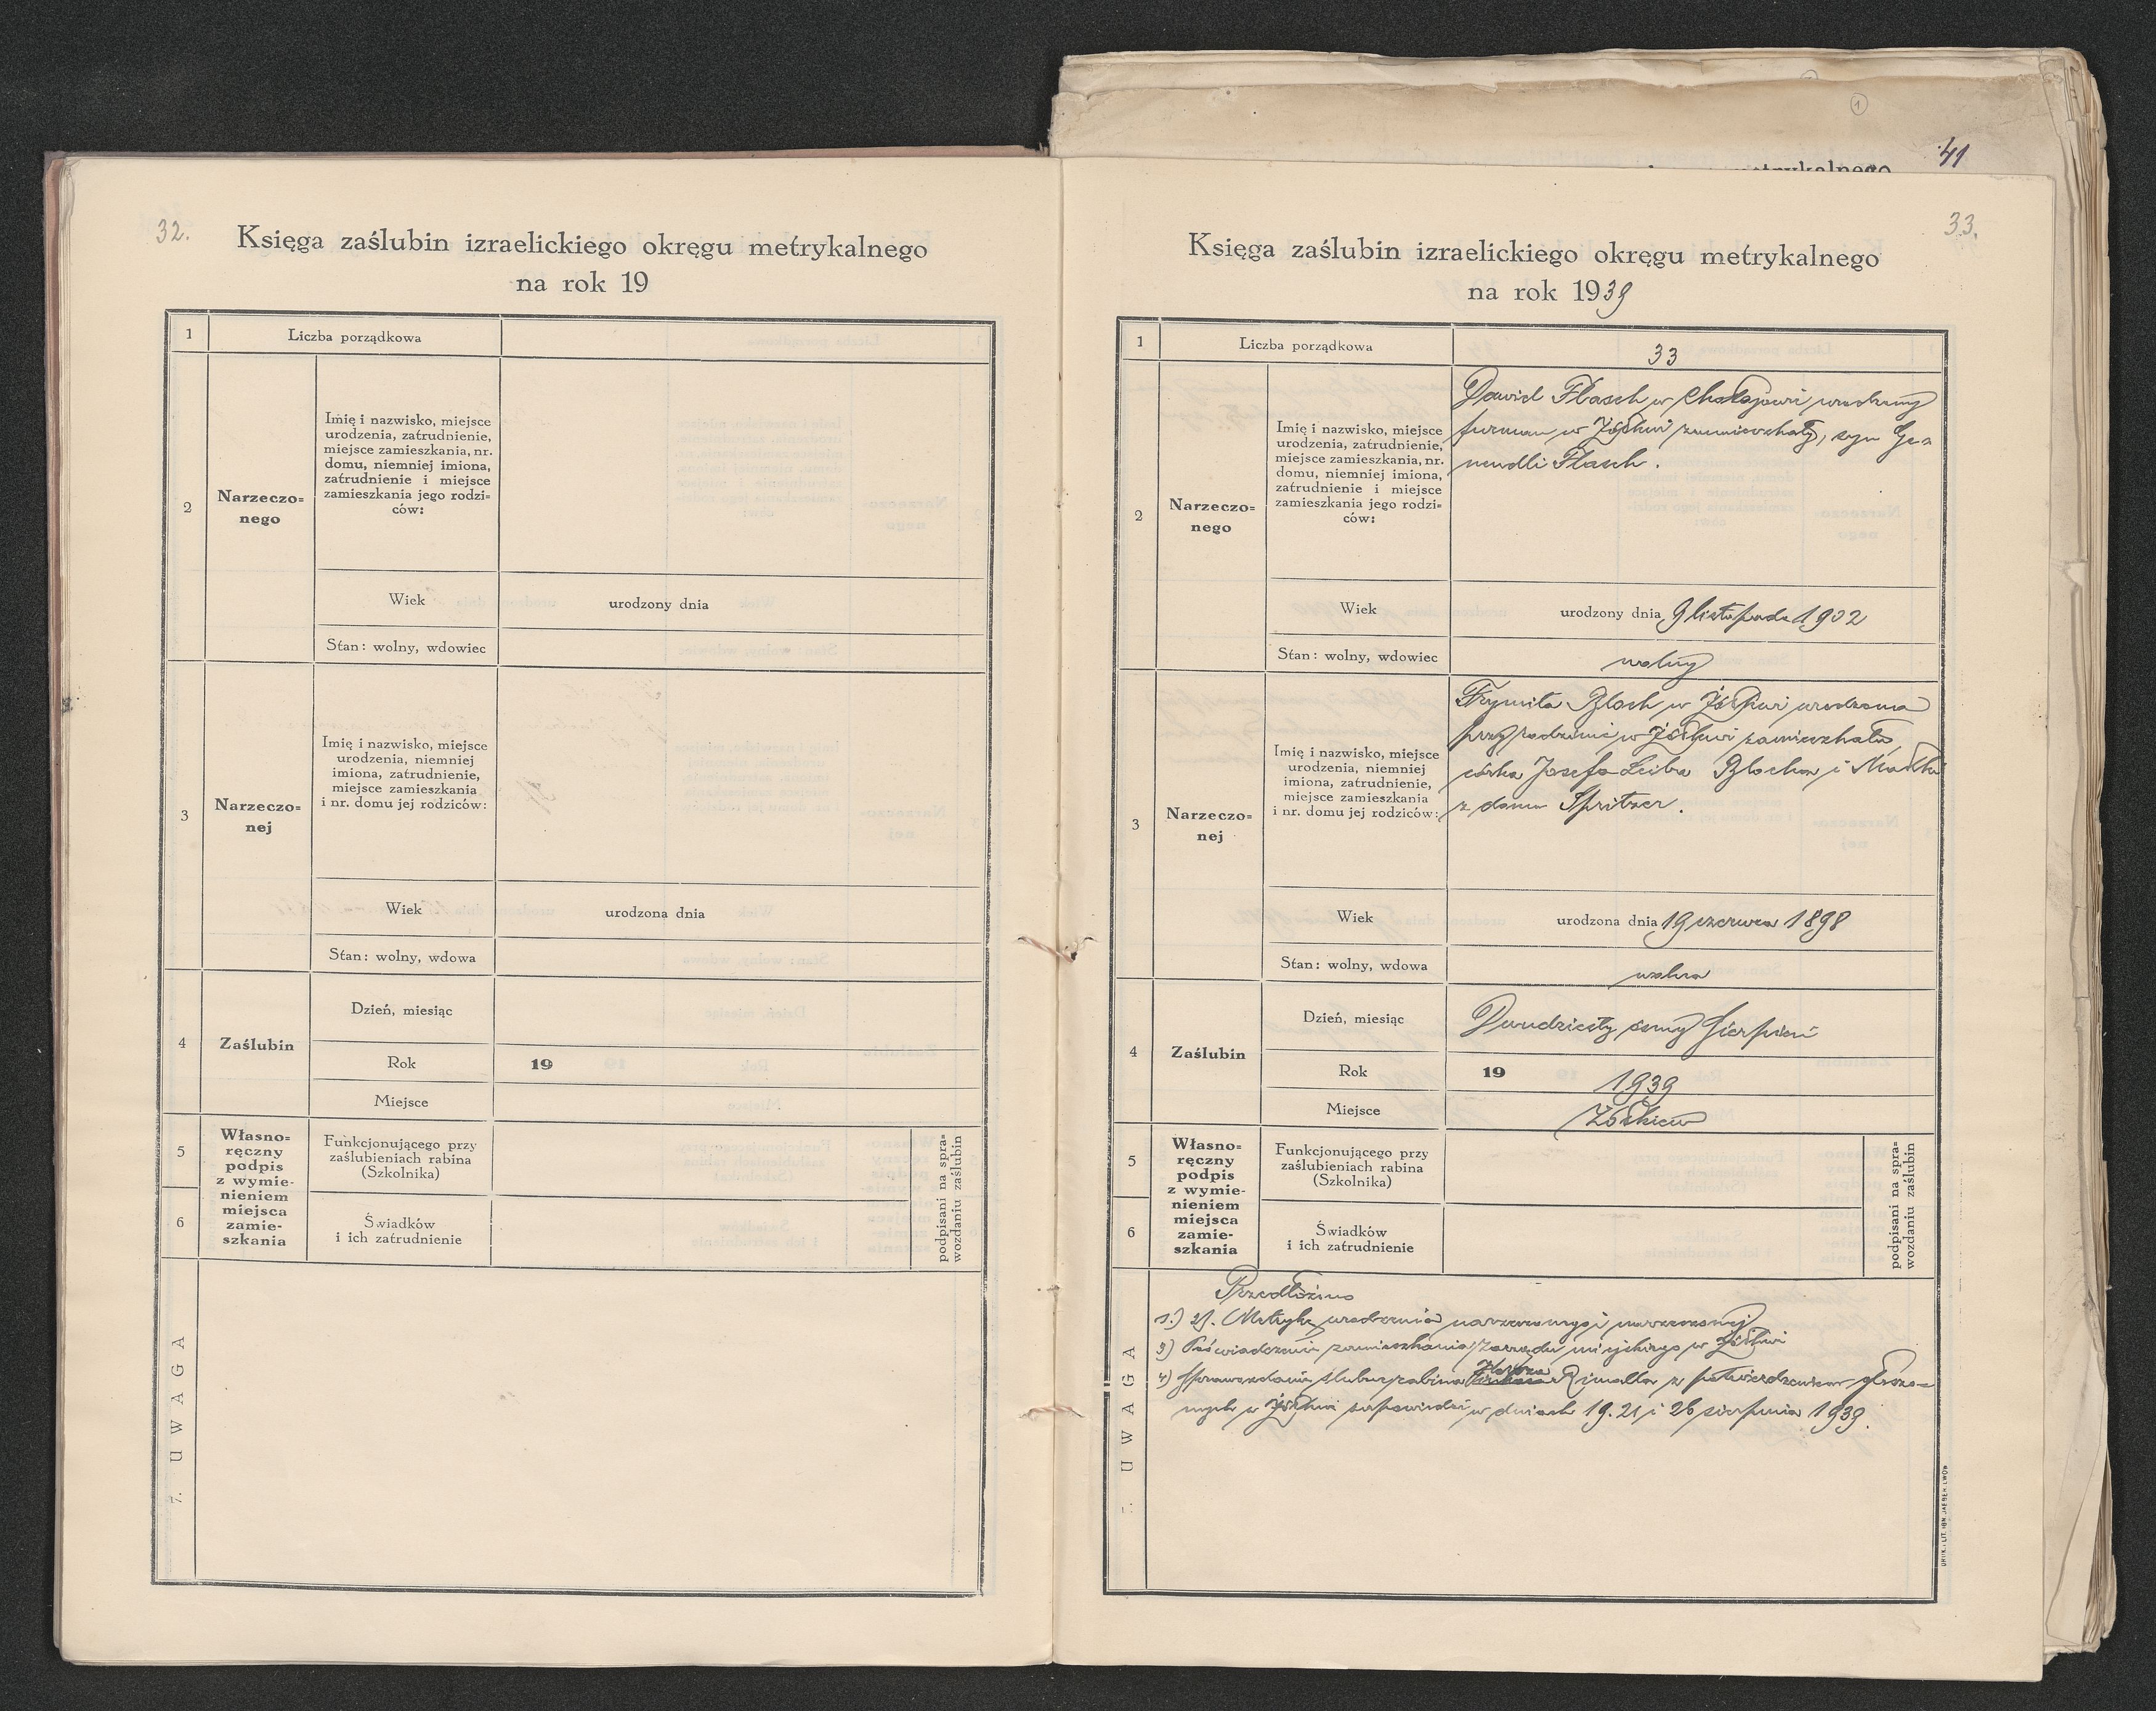 1
41
metrykalnego
32.
Księga zaślubin izraelickiego okręgu metrykalnego
na rok 19
1
Liczba porządkowa
2
Narzeczo=
nego
Imię i nazwisko, miejsce
urodzenia, zatrudnienie,
miejsce zamieszkania, nr.
domu, niemniej imiona,
zatrudnienie i miejsce
zamieszkania jego rodzi=
ców:
Wiek
urodzony dnia
Stan: wolny, wdowiec
3
Narzeczo=
nej
Imię i nazwisko, miejsce
urodzenia, niemniej
imiona, zatrudnienie,
miejsce zamieszkania
i nr. domu jej rodziców:
Wiek
urodzona dnia
Stan: wolny, wdowa
4
Zaślubin
Dzień, miesiąc
Rok
19
Miejsce
5
6
Własno=
ręczny
podpis
z wymie-
nieniem
miejsca
zamie-
szkania
Funkcjonującego przy
zaślubieniach rabina
(Szkolnika)
Świadków
i ich zatrudnienie
podpisani na spra=
wozdaniu zaślubin
7. UWAGA
33.
Księga zaślubin izraelickiego okręgu metrykalnego
na rok 1939
1
Liczba porządkowa
33
2
Narzeczo=
nego
Imię i nazwisko, miejsce
urodzenia, zatrudnienie,
miejsce zamieszkania, nr.
domu, niemniej imiona,
zatrudnienie i miejsce
zamieszkania jego rodzi=
ców:
Dawid Flasch w urodzony
furman w Żółkwi zamieszkały, syn Ge=
nendli Flasch.
Wiek
urodzony dnia 9 listopada 1902
Stan: wolny, wdowiec
wolny
3
Narzeczo=
nej
Imię i nazwisko, miejsce
urodzenia, niemniej
imiona, zatrudnienie,
miejsce zamieszkania
i nr. domu jej rodziców:
Bloch w Żółkwi urodzona
przy rodzinie w Żółkwi zamieszkała,
córka Josefa Leiba Blocha i Malki
z domu Spritzer.
Wiek
urodzona dnia 19 czerwca 1898
Stan: wolny, wdowa
wolna
4
Zaślubin
Dzień, miesiąc
Dwudziesty ósmy Sierpień
Rok
19
1939
Miejsce
Żółkiew
5
6
Własno=
ręczny
podpis
z wymie-
nieniem
miejsca
zamie-
szkania
Funkcjonującego przy
zaślubieniach rabina
(Szkolnika)
Świadków
i ich zatrudnienie
podpisani na spra=
wozdaniu zaślubin
7. UWAGA
Przedłożono
1.) 2). Metrykę urodzenia narzeczonego i narzeczonej
3) Poświadczenie zamieszkania Zarządu miejskiego w Żółkwi
4) Sprawozdanie ślubu rabina Rimalta z potwierdzeniem głoszo=
nych w Żółkwi zapowiedzi w dniach 19. 21 i 26 sierpnia 1939.
DRUK. i LIT. IGN. JAEGER, LWÓW